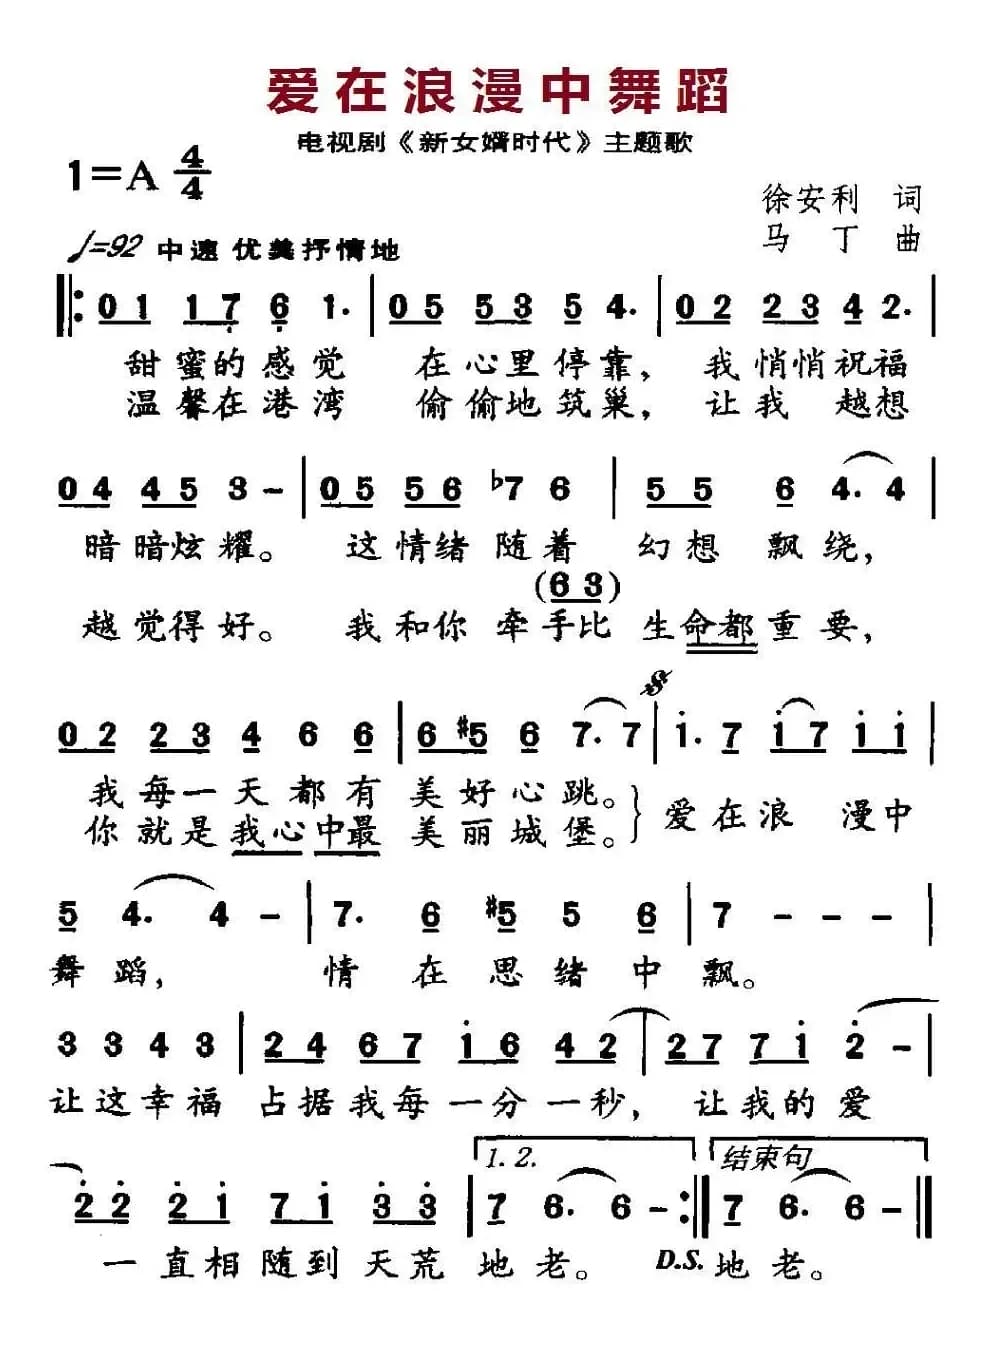 爱在浪漫中舞蹈
电视剧《新女婿时代》主题歌
1=A 4/4
徐安利 词
♩=92 中速 优美抒情地
马丁 曲
0 1 1 7 6 1. | 0 5 5 3 5 4. | 0 2 2 3 4 2. |
甜蜜的感觉 在心里停靠, 我悄悄祝福
温馨在港湾 偷偷地筑巢, 让我 越想
0 4 4 5 3 - | 0 5 5 6 ♭7 6 | 5 5 6 4. 4 |
暗暗炫耀。 这情绪随着 幻想 飘绕,
(6 3)
越觉得好。 我和你 牵手比 生命都重要,
0 2 2 3 4 6 6 | 6 #5 6 7. 7 | 1. 7 1 7 1 1 |
我每一天都有 美好心跳。
你就是我心中最 美丽城堡。
爱在浪 漫中
5 4. 4 - | 7. 6 #5 5 6 | 7 - - - |
舞蹈, 情在思绪中飘。
3 3 4 3 | 2 4 6 7 1 6 4 2 | 2 7 7 1 2 - |
让这幸福 占据我每一分一秒, 让我的爱
1. 2. 结束句
2 2 2 1 7 1 3 3 | 7 6. 6 - :| 7 6. 6 - ‖
一直相随到天荒 地老。 D.S. 地老。